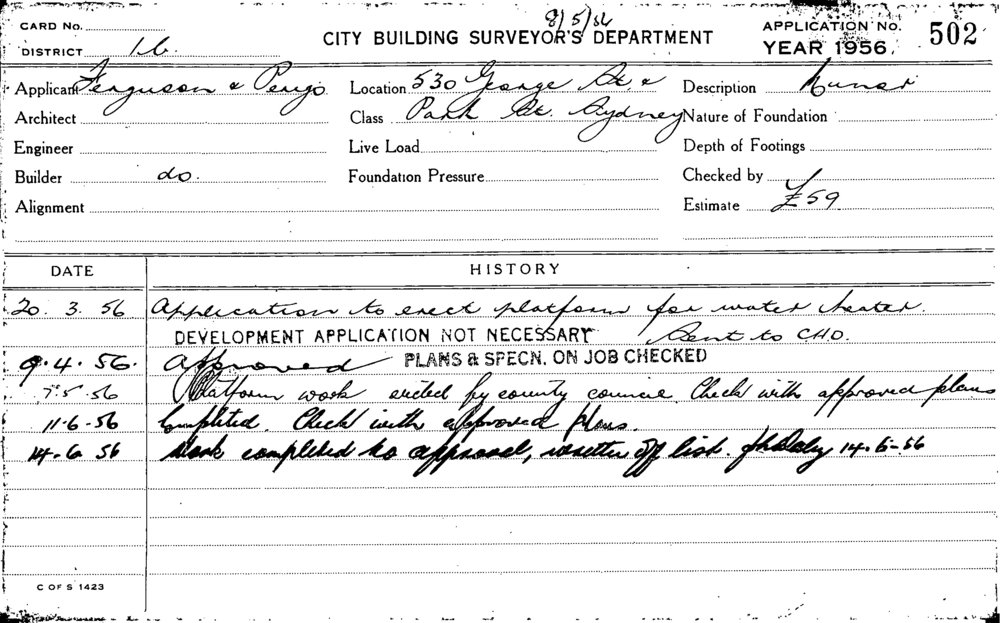 8/5/56
CARD No.
DISTRICT 16
CITY BUILDING SURVEYOR'S DEPARTMENT
APPLICATION No. 502
YEAR 1956
Applicant Ferguson & Perigo
Location 530 George St. &
Description
Architect
Class Park St. Sydney
Nature of Foundation
Engineer
Live Load
Depth of Footings
Builder do.
Foundation Pressure
Checked by
Alignment
Estimate £59
DATE HISTORY
20. 3. 56 Application to erect platform for water heater.
DEVELOPMENT APPLICATION NOT NECESSARY Sent to C.H.O.
9.4.56. Approved PLANS & SPECN. ON JOB CHECKED
7.5.56 Platform work by county council. Check with approved plans
11-6-56 Completed. Check with approved plans.
14-6 56 Work completed to approval, written off list. 14-6-56
C OF S 1423